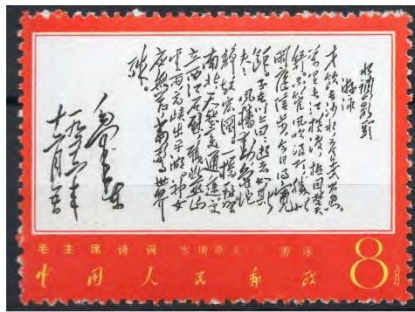 水调歌头
游泳
才饮长沙水又食武昌鱼
万里长江横渡极目楚天
舒不管风吹浪打胜似
闲庭信步今日得宽
馀子在川上曰逝者如斯
夫风樯动龟蛇
静起宏图一桥飞架
南北天堑变通途更
立西江石壁截断巫山
云雨高峡出平湖神女
应无恙当惊世界
殊
毛泽东
一九五六年
十二月五日
毛主席诗词 水调歌头 游泳
中国人民邮政
8分